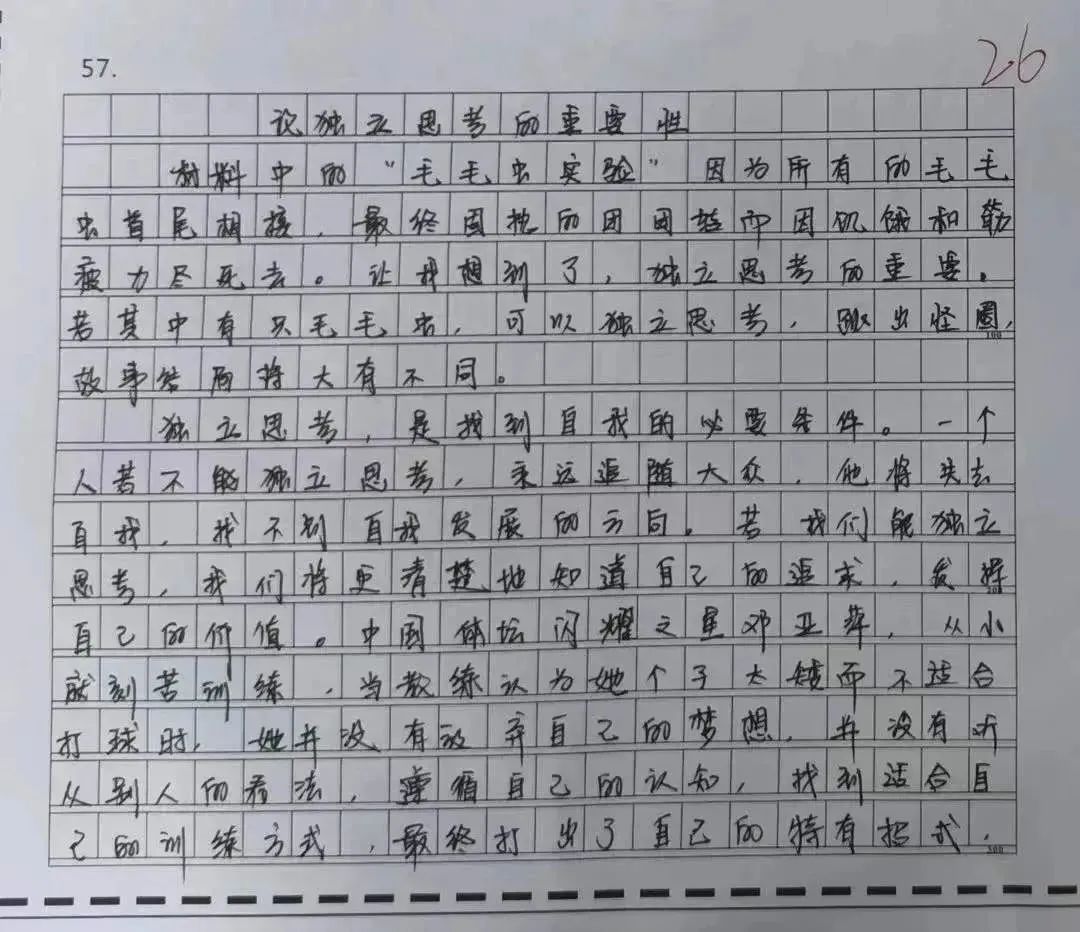 57.
26
论独立思考的重要性
材料中的“毛毛虫实验”因为所有的毛毛
虫首尾相接，最终固执的团团转而因饥饿和筋
疲力尽死去。让我想到了，独立思考的重要。
若其中有只毛毛虫，可以独立思考，跳出怪圈，
故事结局将大有不同。
独立思考，是找到自我的必要条件。一个
人若不能独立思考，永远追随大众，他将失去
自我，找不到自我发展的方向。若我们能独立
思考，我们将更清楚地知道自己的追求，发挥
自己的价值。中国体坛闪耀之星邓亚萍，从小
就刻苦训练，当教练认为她个子太矮而不适合
打球时，她并没有放弃自己的梦想，并没有听
从别人的看法，遵循自己的认知，找到适合自
己的训练方式，最终打出了自己的特有招式，